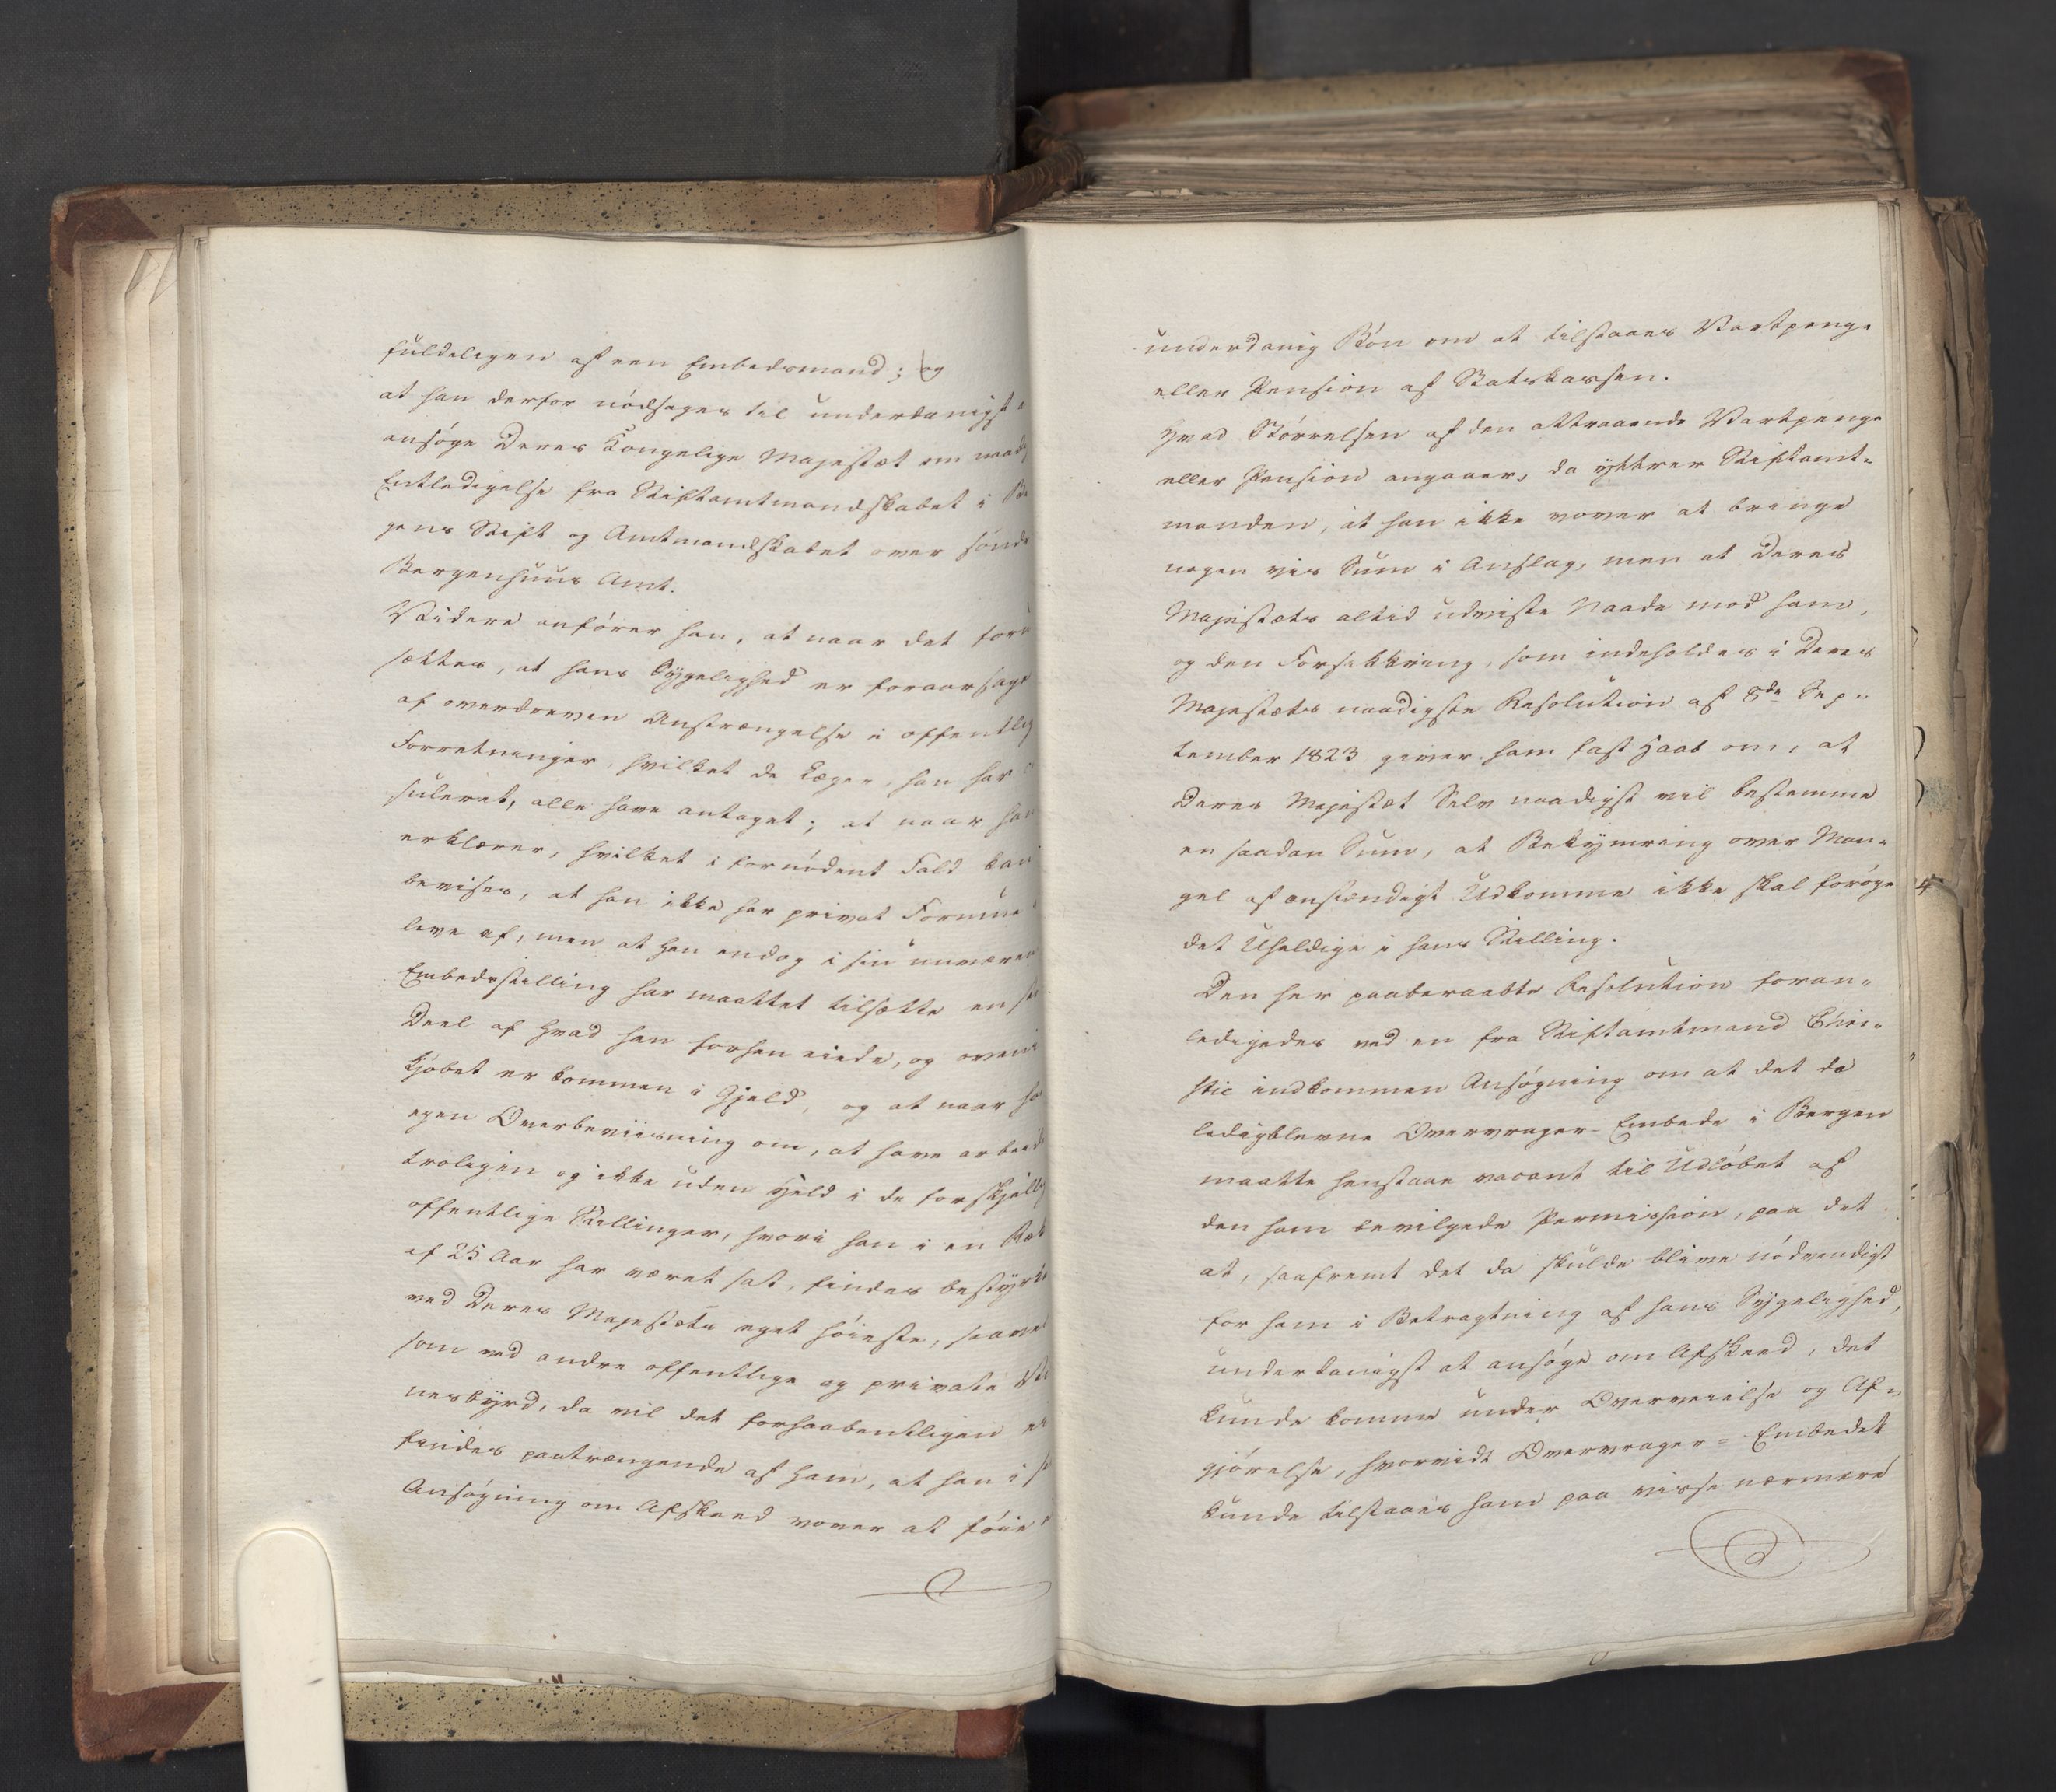 fuldeligen af een Embedsmand; og
at han derfor nödsages til underdanigst
ansöge Deres Kongelige Majestæt om naad
Entledigelse fra Stiftamtmandskabet i Be
gens Stift og Amtmandskabet over sönd
Bergenhuus Amt.
Videre anförer han, at naar det foru
sættes, at hans Sygelighed er foraarsage
af overdreven Anstrængelse i offentlig
Forretninger, hvilket de Læger, han har
suleret, alle have antaget; at naar han
erklærer, hvilket i fornödent Fald kan
bevises, at han ikke har privat Formue
leve af, men at han endog i sin nuværen
Embedsstilling har maattet tilsætte en
Deel af hvad han forhen eiede, og oveni
Kjöbet er kommen i Gjeld, og at naar ha
egen Overbeviisning om, at have arbeid
troligen og ikke uden Held i de forskjellig
offentlige Stillinger, hvori han i en Ræk
af 25 Aar har været sat, findes bestyrk
ved Deres Majestæts eget höieste, saavel
som ved andre offentlige og private Vid
nesbyrd, da vil det forhaabentligen ei
findes paatrængende af ham, at han i s
Ansögning om Afskeed vover at föie
underdanig Bön om at tilstaaes Vartpenge
eller Pension af Statskassen.
Hvad Störrelsen af den attraaende Vartpenge
eller Pension angaaer, da yttrer Stiftamt-
manden, at han ikke vover at bringe
nogen vis Sum i Anslag, men at Deres
Majestæts altid udviste Naade mod ham,
og den Forsikkring, som indeholdes i Deres
Majestæts naadigste Resolution af 8de Sep-
tember 1823 giver ham fast Haab om, at
Deres Majestæt Selv naadigst vil bestemme
en saadan Sum, at Bekymring over Man-
gel af anstændigt Udkomme ikke skal foröge
det Uheldige i hans Stilling.
Den her paaberaabte Resolution foran-
ledigedes ved en fra Stiftamtmand Chri-
stie indkommen Ansögning om at det da
ledigblevne Overvrager-Embede i Bergen
maatte henstaae vacant til Udlöbet af
den ham bevilgede Permission, paa det
at, saafremt det da skulde blive nödvendigt
for ham i Betragtning af hans Sygelighed,
underdanigst at ansöge om Afskeed, det
kunde komme under Overveielse og Af-
gjörelse, hvorvidt Overvrager-Embedet
kunde tilstaaes ham paa visse nærmere